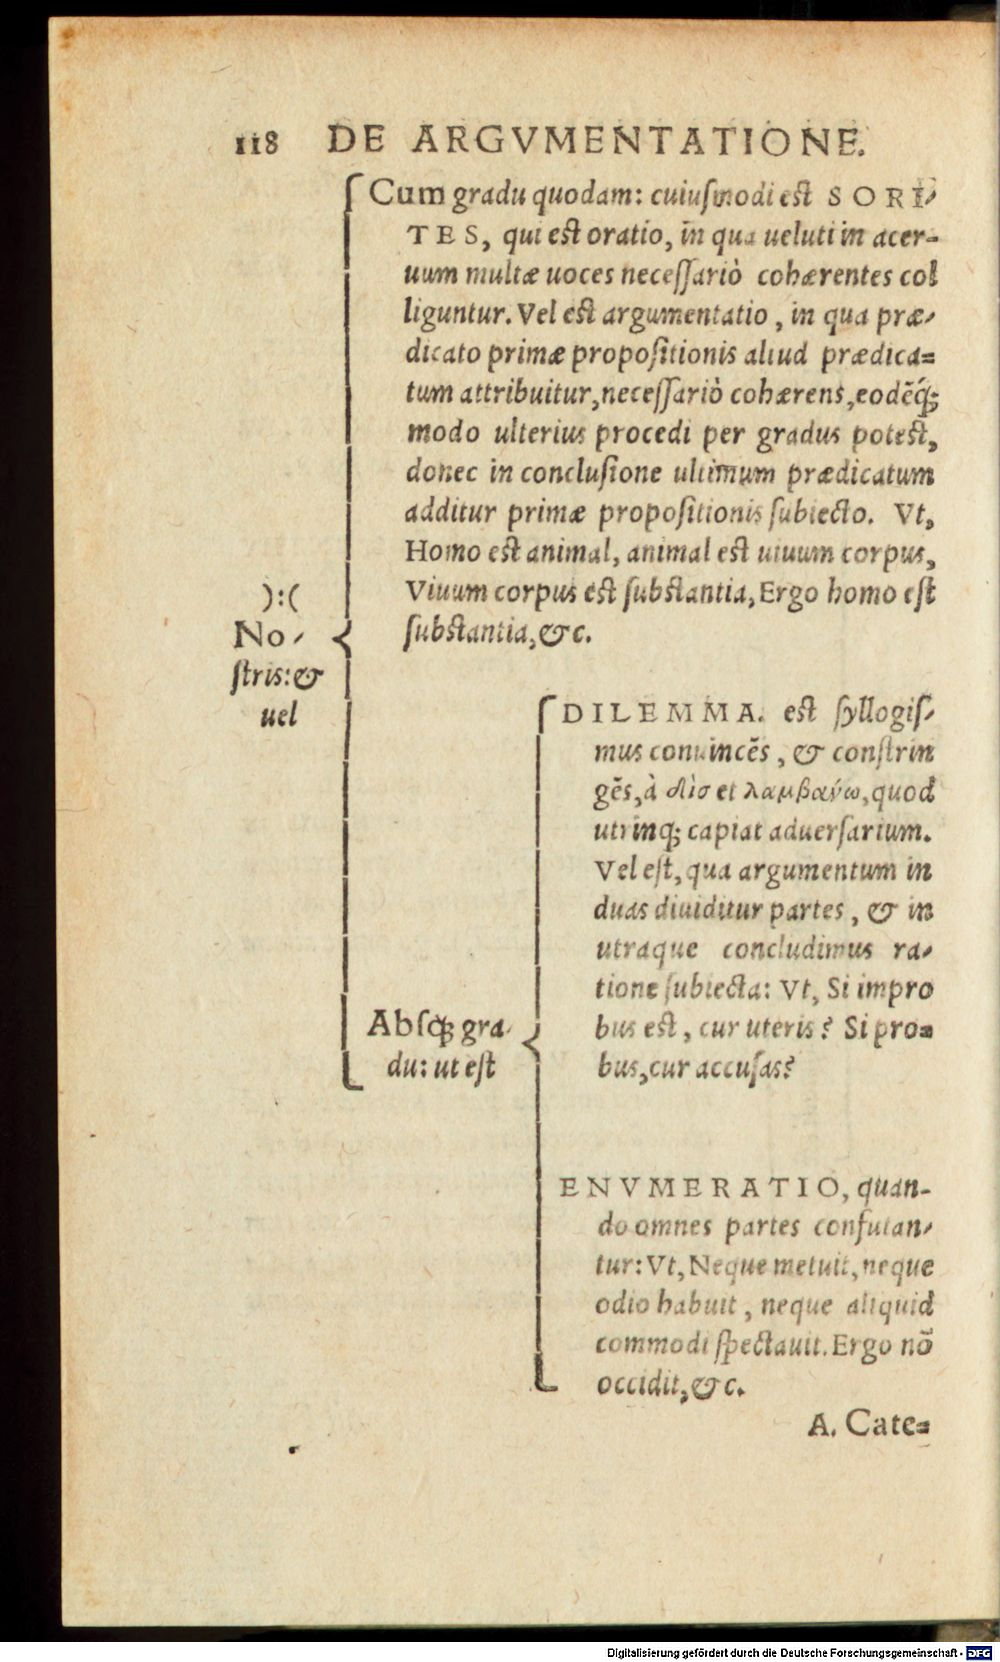 118 DE ARGVMENTATIONE.
Cum gradu quodam: cuiuſmodi est SORI-
TES, qui est oratio, in qua ueluti in acer-
uum multæ uoces neceſſariò cohærentes col
liguntur. Vel est argumentatio, in qua præ-
dicato primæ propoſitionis aliud prædica=
tum attribuitur, neceſſariò cohærens, eodēq́;
modo ulterius procedi per gradus potest,
donec in concluſione ultimum prædicatum
additur primæ propoſitionis ſubiecto. Vt,
Homo est animal, animal est uiuum corpus,
Viuum corpus est ſubstantia, Ergo homo eſt
ſubstantia, &c.
):(
No-
ſtris: &
uel
DILEMMA. est ſyllogiſ-
mus conuincēs, & conſtrin
gēs, à δὶσ et λαμβανω, quod
utrinq; capiat aduerſarium.
Vel eſt, qua argumentum in
duas diuiditur partes, & in
utraque concludimus ra-
tione ſubiecta: Vt, Si impro
bus est, cur uteris? Si pro=
bus, cur accuſas?
Abſq; gra-
du: ut eſt
ENVMERATIO, quan-
do omnes partes confutan-
tur: Vt, Neque metuit, neque
odio habuit, neque aliquid
commodi ſpectauit. Ergo nō
occidit, &c.
A. Cate=
Digitalisierung gefördert durch die Deutsche Forschungsgemeinschaft - DFG